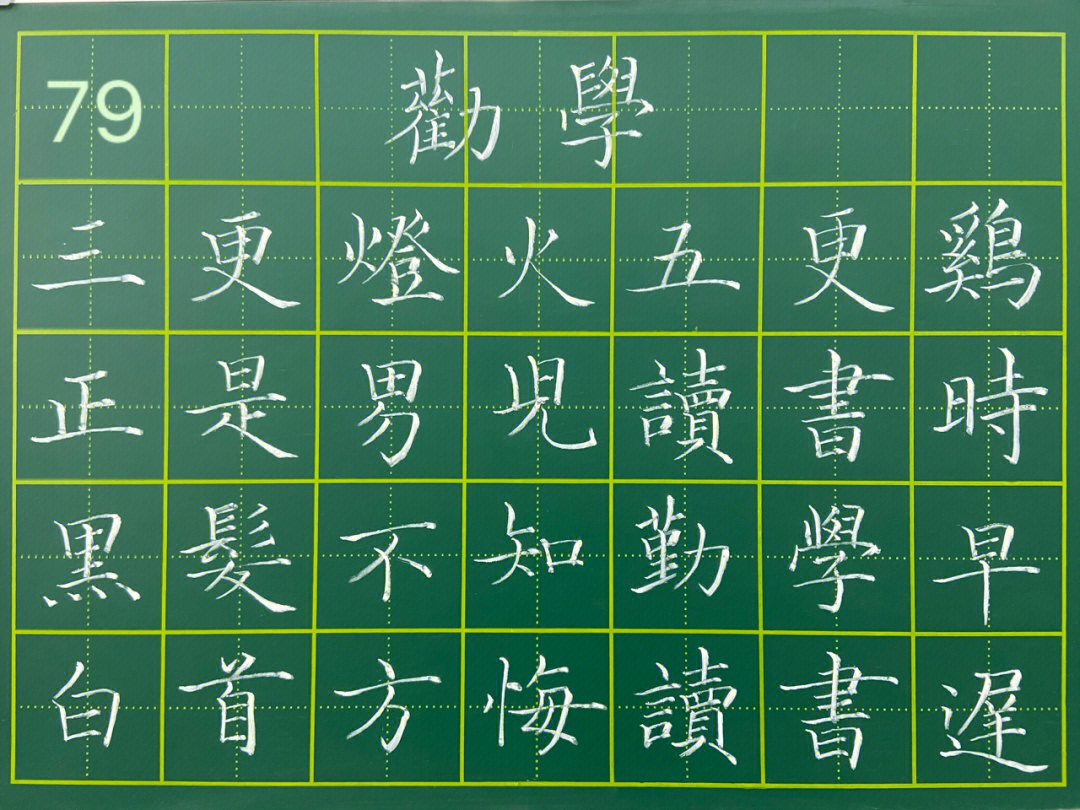 79
勸學
三更燈火五更鷄
正是男兒讀書時
黑髮不知勤學早
白首方悔讀書遲